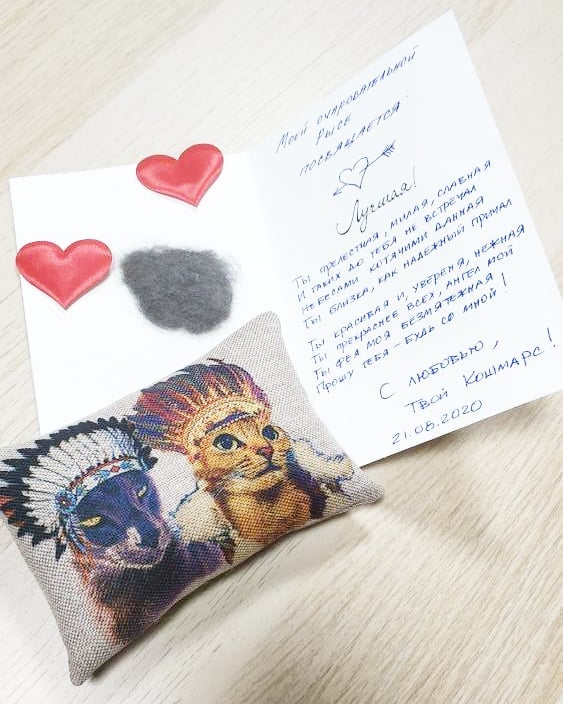 Моей очаровательной
Рысе
посвящается:
Лучшая!
Ты прелестная, милая, славная
И таких до тебя не встречал
Небесами котячими данная
Ты близка, как надежный причал
Ты красивая и, уверен, нежная
Ты прекраснее всех, ангел мой
Ты фея моя безмятежная
Прошу тебя – будь со мной!
С любовью,
Твой Кошмарс!
21.08.2020